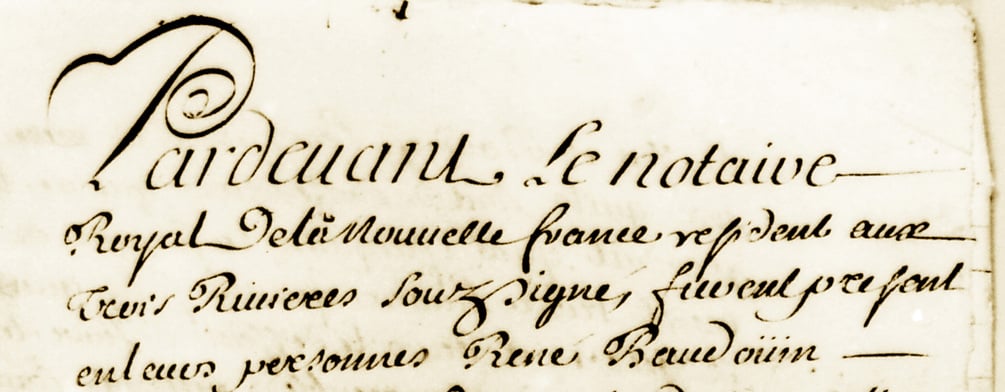 Pardeuant Le notaire
Royal De la Nouuelle france resident aux
trois Riuieres Souz Signé, furent present
en leurs personnes René Baudoüin